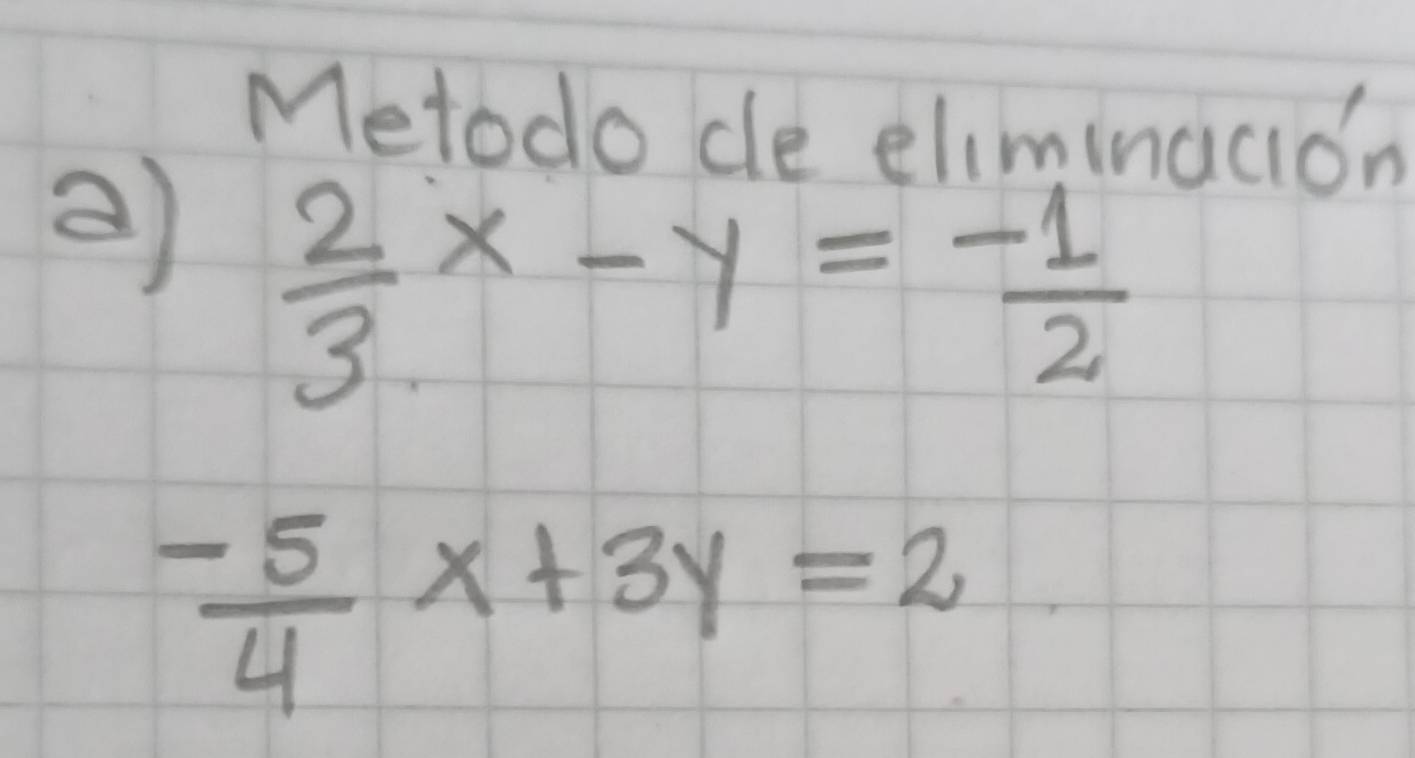 Metodo de eliminación
a) 2/3 x - y = -1/2
-5/4 x + 3y = 2